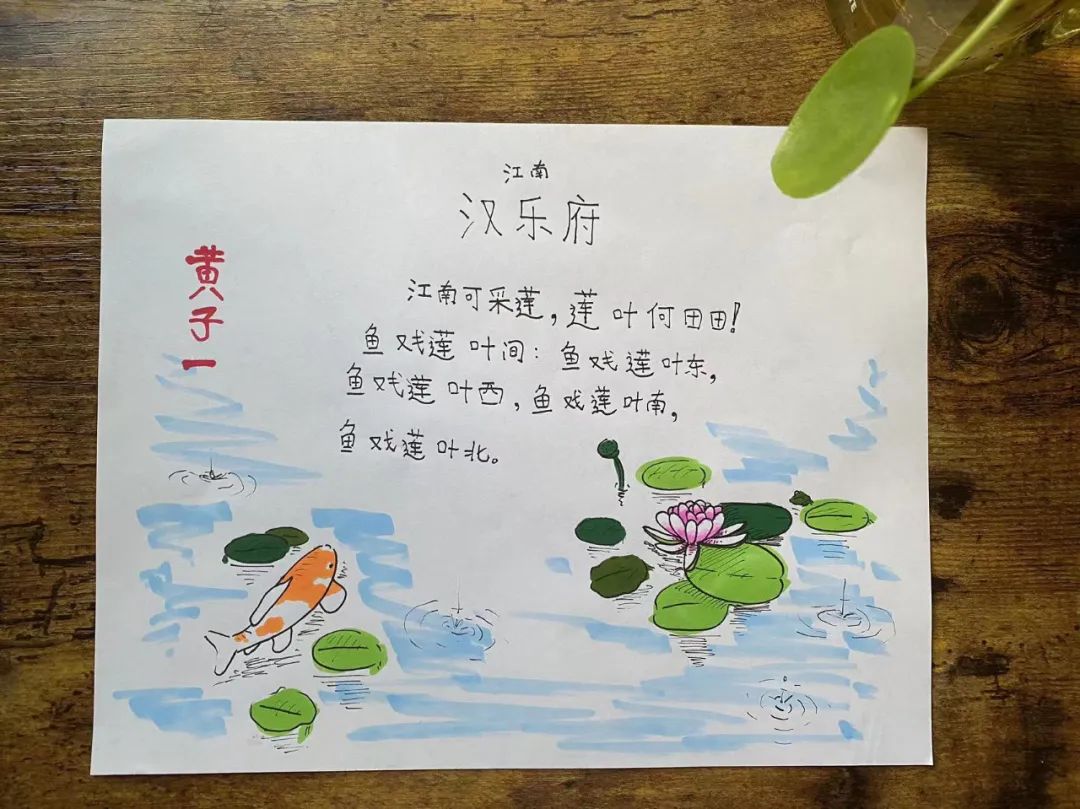 江南
汉乐府
黄子一
江南可采莲，莲叶何田田！
鱼戏莲叶间：鱼戏莲叶东，
鱼戏莲叶西，鱼戏莲叶南，
鱼戏莲叶北。